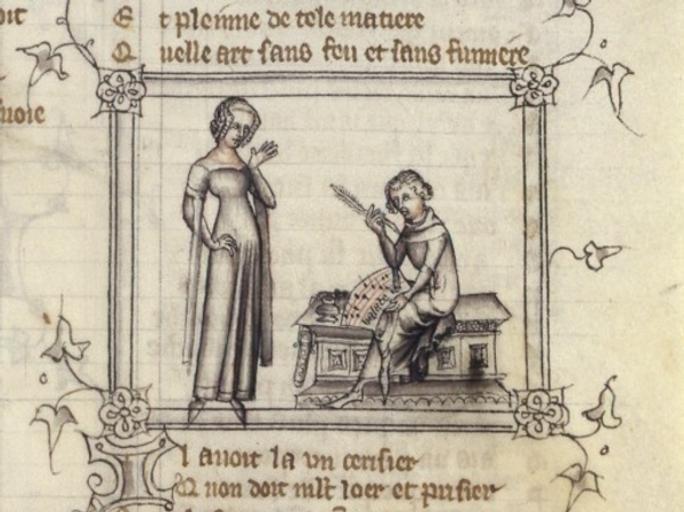 oit
E t pleinne de tele matiere
Q uelle art sans feu et sans fumiere
uoie
I l auoit la vn cerisier
Q non doit mlt loer et prisier